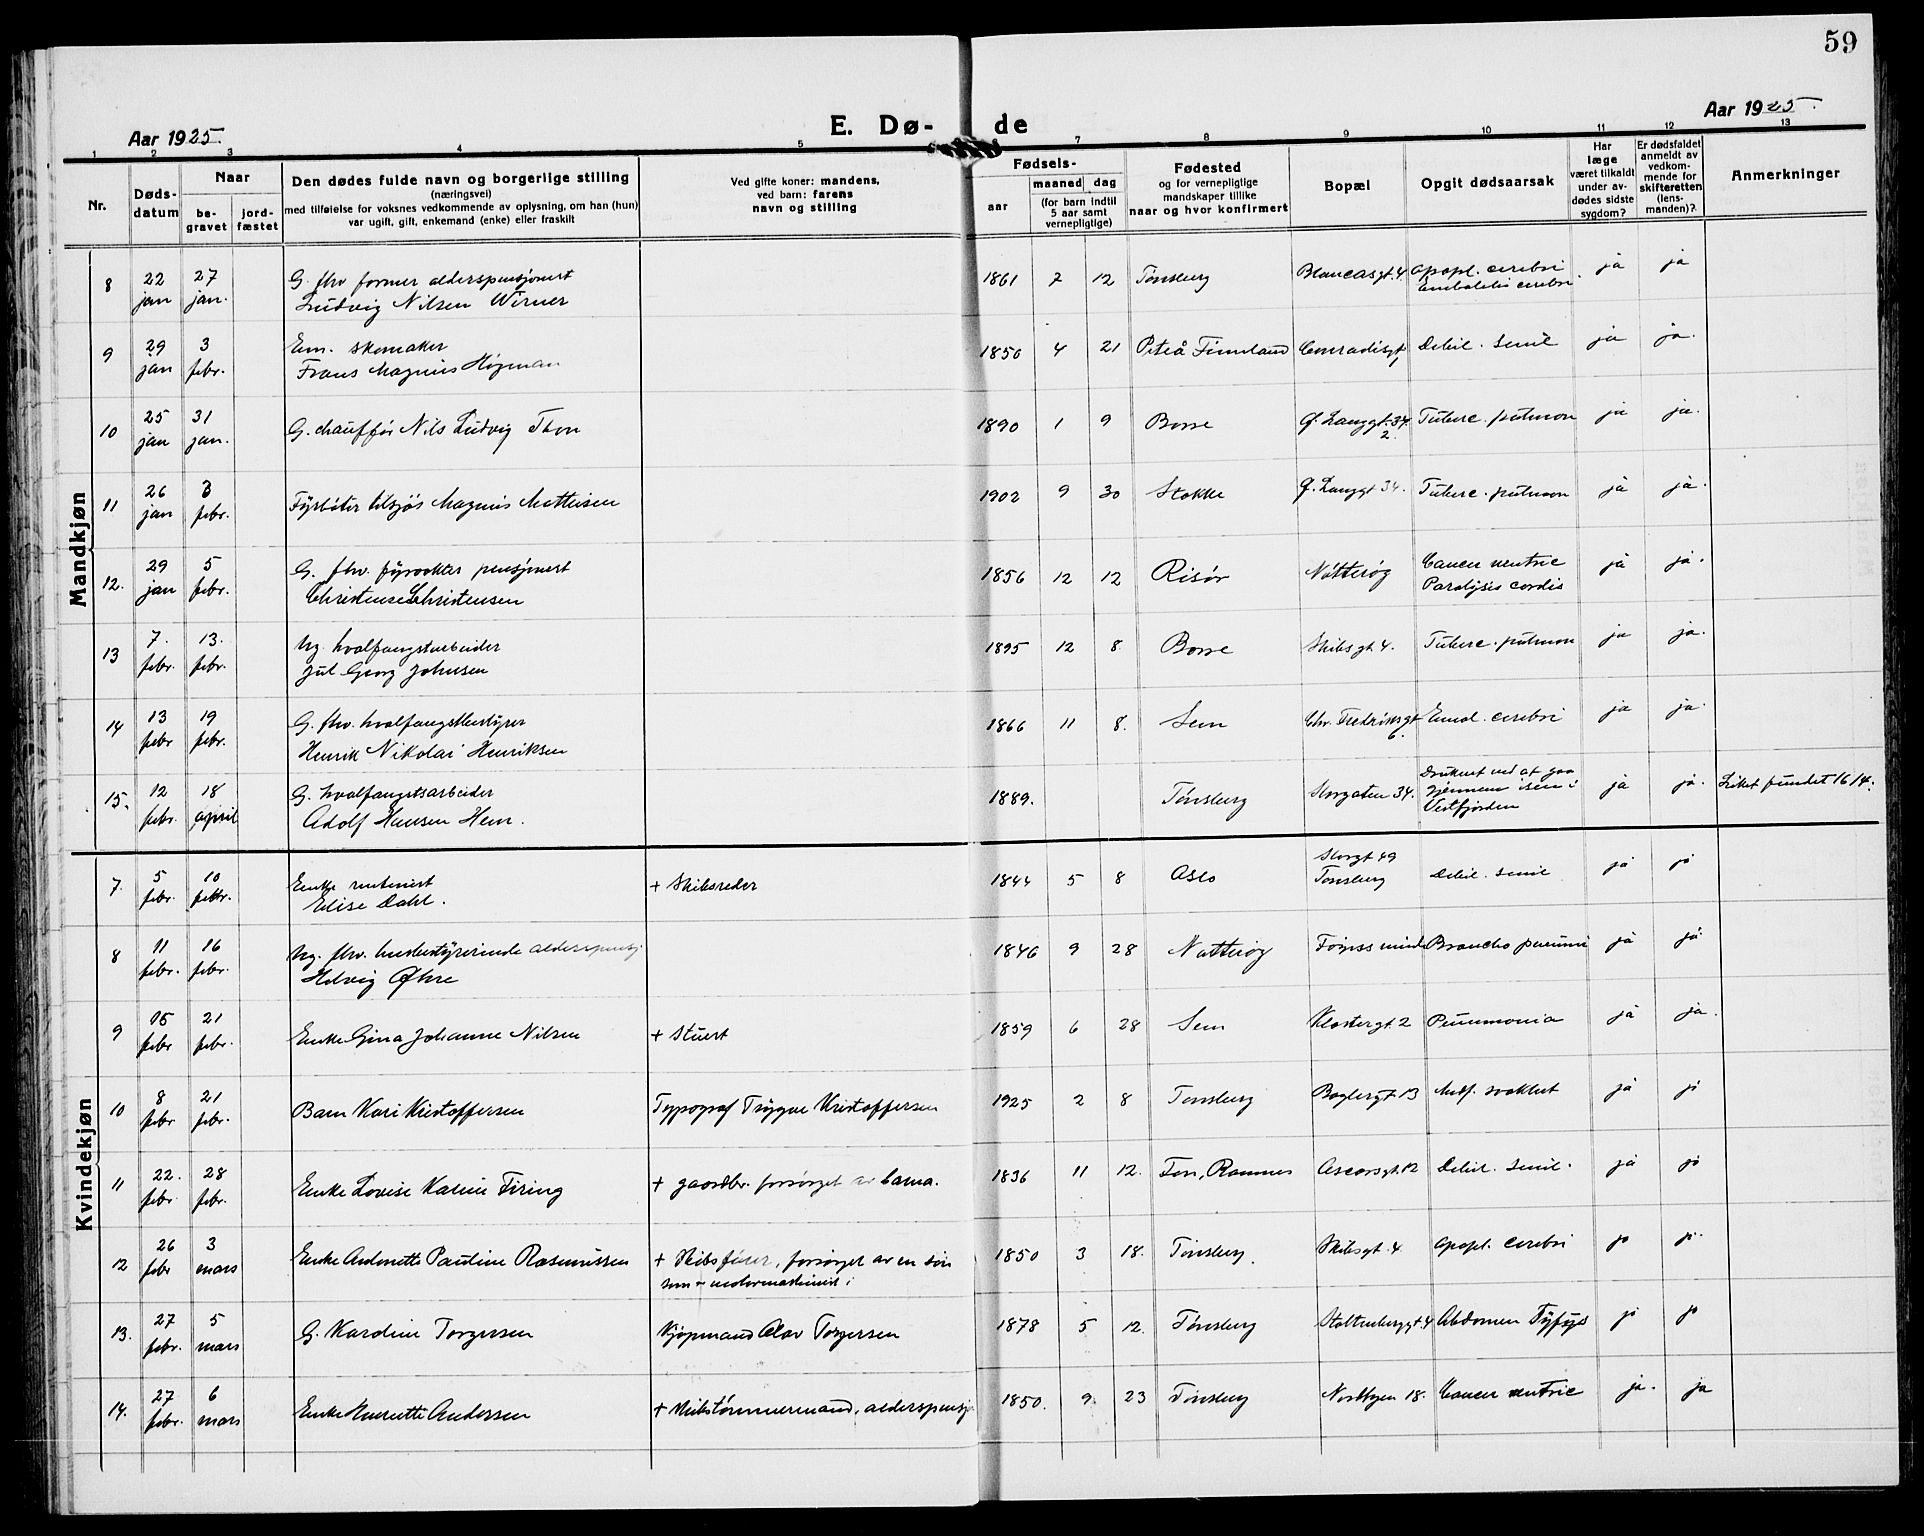 59
Aar 1925.
E. Dø- de
Aar 1925.
1 2 3 4 5 7 8 9 10 11 12 13
Nr.
Døds-
datum
Naar
be-
gravet
jord-
fæstet
Den dødes fulde navn og borgerlige stilling
(næringsvei)
med tilføielse for voksnes vedkommende av oplysning, om han (hun)
var ugift, gift, enkemand (enke) eller fraskilt
Ved gifte koner: mandens,
ved barn: farens
navn og stilling
Fødsels-
aar
maaned dag
(for barn indtil
5 aar samt
vernepligtige)
Fødested
og for vernepligtige
mandskaper tillike
naar og hvor konfirmert
Bopæl
Opgit dødsaarsak
Har
læge
været tilkaldt
under av-
dødes sidste
sygdom?
Er dødsfaldet
anmeldt av
vedkom-
mende for
skifteretten
(lens-
manden)?
Anmerkninger
Mandkjøn
8 22 jan 27 jan. G. fhv former alderspensjonert
Ludvig Nilsen Wirner 1861 2 12 Tønsberg apopl. cerebri
Embolisi cerebri ja ja
9 29 jan 3 febr. Em. skomaker
Frans Magnus Høgman 1850 4 21 Piteå Finnland Conradisgt, Debil. senil ja ja.
10 25 jan 31 jan. G. chauffør Nils Ludvig Thon 1890 1 9 Borre Ø. Langgt. 34
2. Tuberc. pulmon ja ja.
11 26 jan 3 febr. Fyrbøter tilsjøs Magnus Mathisen 1902 9 30 Stokke Ø. Langgt 34. Tuberc. pulmon ja ja.
12. 29 jan 5 febr. G. fhv. fyrvokter pensjonert
Christensen 1856 12 12 Risør Nøtterøy Cancer ventric
Paralysis cordis ja ja.
13 7. febr. 13. febr. Ug. hvalfangstarbeider
Jul Georg Johnsen 1895 12 8 Borre Skibsgt 4. Tuberc. pulmon ja ja.
14 13 febr 19 febr. G. fhv. hvalfangstbestyrer
Henrik Nikolai Henriksen 1866 11 8. Sem Chr. Fredriksgt
6. Embol. cerebri ja ja.
15. 12 febr. 18 april G. hvalfangstsarbeider
Adolf Hansen Hem. 1889. Tønsberg Storgaten 34. Druknet ved at gaa
gjennem isen i
Vestfjorden ja ja. Liket fundet 16/4.
Kvindekjøn
7. 5 febr. 10 febr. Enke rentenist
Elise Dahl. + Skibsreder 1844 5 8 Oslo Storgt 49
Tønsberg Debil. senil ja ja
8 11 febr. 16 febr. Ug. fhv. alderspensj
Helvig Øhre 1846 9 28 Nøtterøy Broncho pneumi ja ja
9 15 febr 21 febr. Enke Gina Johanne Nilsen + Stuert 1859 6 28 Sem Klostergt. 2 Pneumonia ja ja.
10 8 febr 21 febr. Barn Kari Kristoffersen Typograf Trygve Kristoffersen 1925 2 8 Tønsberg Baglergt 13 Medf. svakhet ja ja
11 22. febr. 28 febr. Enke Lovise Karine Firing + gaardbr. forsørget av barna. 1836 11 12. Fon, Ramnes Oscarsgt. 12 Debil. senil. ja ja
12 26 febr 3 mars Enke Andonette Pauline Rasmussen + Skibsfører, forsørget av en søn
som motormaskinist i 1850 3 18. Tønsberg. Skibsgt. 4. apopl. cerebri ja ja.
13. 27 febr. 5 mars G. Karoline Torgersen Kjøpmand Olav Torgersen 1878 5 12. Tønsberg Stoltenberggt. 4 Abdomen Tyfus ja ja
14. 27 febr. 6 mars Enke Henriette Andersen + Skibstømmermand, alderspensj 1850. 9 23 Tønsberg Nordbyen 18. Cancer ventric ja. ja